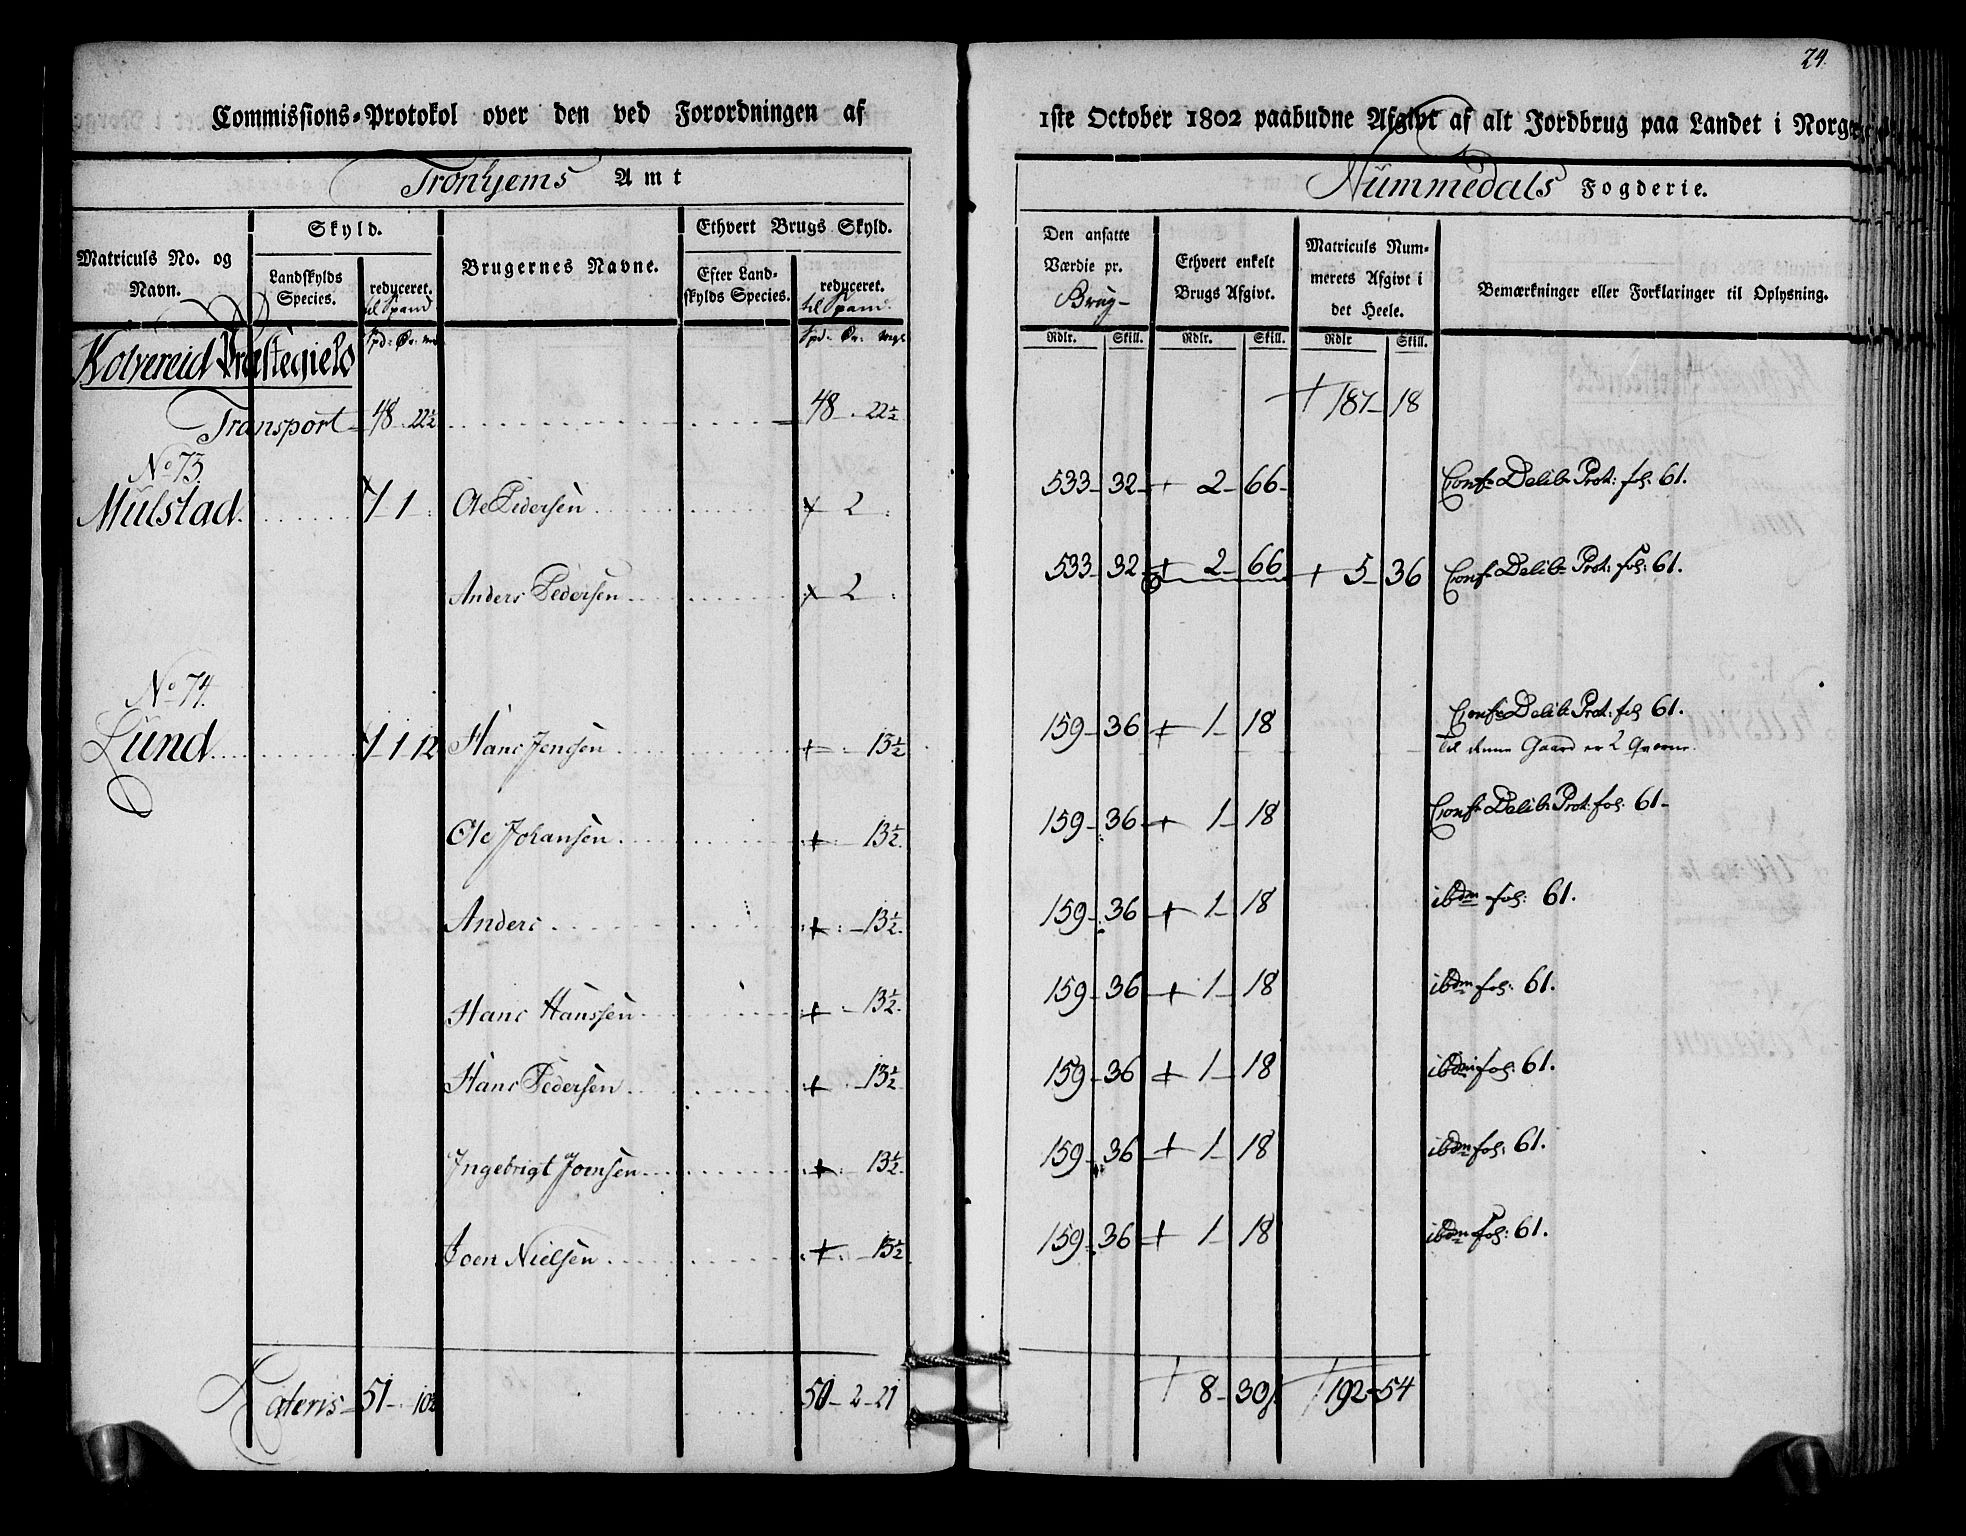 24.
Commissions-Protokol over den ved Forordningen af 1ste October 1802 paabudne Afgivt af alt Jordbrug paa Landet i Norge
Tronhjems Amt
Nummedals Fogderie.
Matriculs No. og Navn.
Skyld.
Landskylds Species.
reduceret. til Spand
Brugernes Navne.
Ethvert Brugs Skyld.
Efter Landskylds Species.
reduceret. til Spand.
Den ansatte Værdie pr. Brug-
Ethvert enkelt Brugs Afgivt.
Matriculs Nummerets Afgivt i det Heele.
Bemærkninger eller Forklaringer til Oplysning.
Spd: Ør:
Spd: Ør: mgl
Rdlr. Skill. Rdlr. Skill. Rdlr Skill.
Kolvereid Præstegield
Transport 48 . 22½ 48 . 22½ + 187 - 18
No 73.
Mulstad 1 - 1 Ole Pedersen 2 533 - 32 + 2 - 66 Confr Delib: Prot: fol: 61.
Anders Pedersen 2 533 - 32 + 2 - 66 + 5 - 36 Confr Delib: Prot: fol: 61.
No 74.
Lund 1 - 1 12 Hans Jensen + 13½ 159 - 36 + 1 - 18 Confr Delib: Prot: fol 61.
Til denne Gaard er 2 Qverne.
Ole Johansen + 13½ 159 - 36 + 1 - 18 Confr Delib: Prot: fol: 61 -
Anders + 13½ 159 - 36 + 1 - 18 ibdm fol: 61.
Hans Hanssen + 13½ 159 - 36 + 1 - 18 ibdm fol: 61.
Hans Pedersen + 13½ 159 - 36 + 1 - 18 ibdm fol: 61.
Ingebrigt Joensen + 13½ 159 - 36 + 1 - 18 ibdm fol: 61.
Joen Nielsen + 13½ 159 - 36 + 1 - 18 ibdm fol: 61.
Lateris 51 - 10½ 50 - 2 - 21 + 8 - 30 + 192 - 54